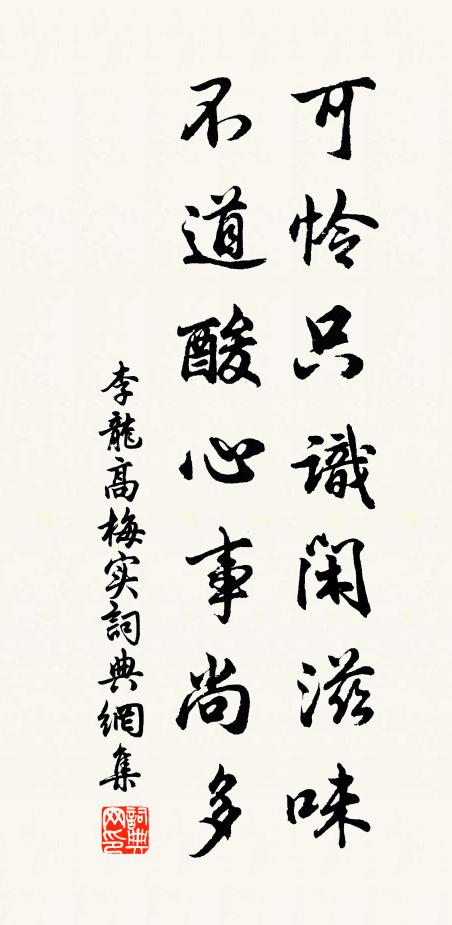 可怜只識闲滋味
不道酸心事尚多
李龍高梅实詞典網集
詞典网印